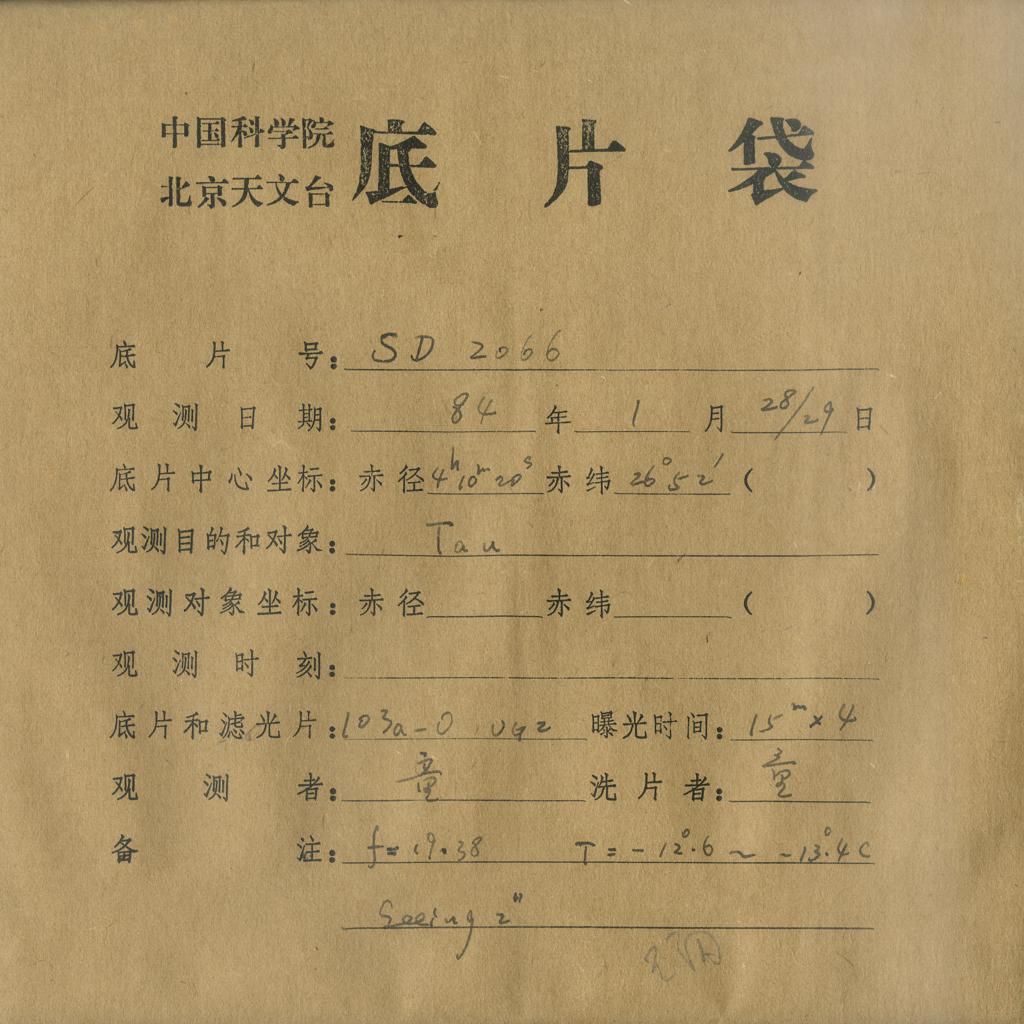 中国科学院
北京天文台
底片袋
底片号：SD 2066
观测日期：84年1月28/29日
底片中心坐标：赤径4h10m20s赤纬26°52′（ ）
观测目的和对象：Tau
观测对象坐标：赤径 赤纬 （ ）
观测时刻：
底片和滤光片：103a-O UG2 曝光时间：15m×4
观测者：童 洗片者：童
备注：f=19.38 T=-12°.6～-13°.4C
Seeing 2"